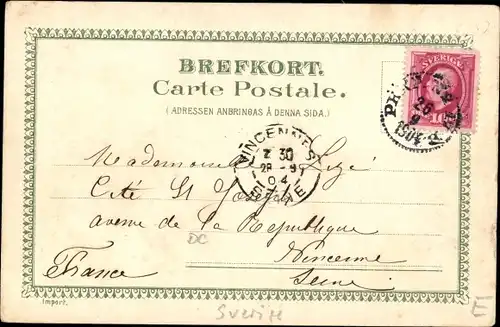 BREFKORT.
Carte Postale.
(ADRESSEN ANBRINGAS Å DENNA SIDA.)
SVERIGE
10
1904
VINCENNES
2 30
28 - 9
04
SEINE
Mademoiselle
Cité St Joseph
avenue de la République
Vincenne
Seine
France
DC
Import.